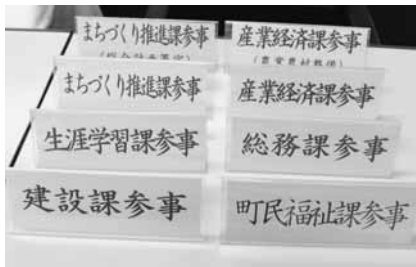 まちづくり推進課参事
産業経済課参事
まちづくり推進課参事
産業経済課参事
生涯学習課参事
総務課参事
建設課参事
町民福祉課参事